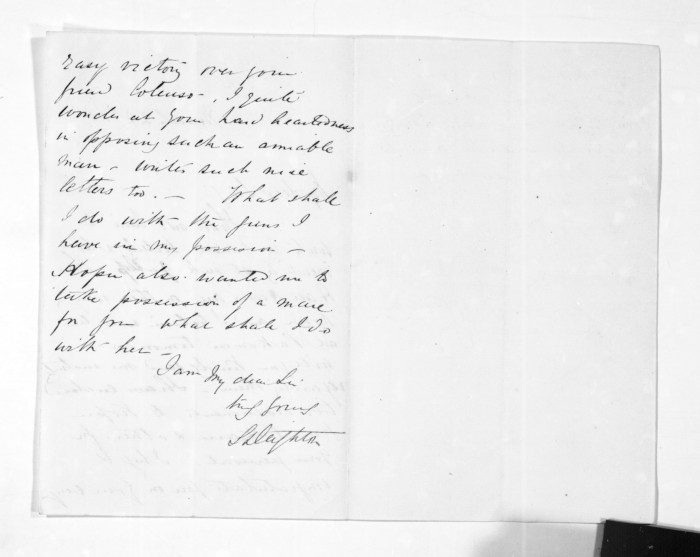 Easy victory over your
friend Colenso -, I quite
wonder at your hard heartedness
in opposing such an amiable
man - writes such nice
letters too. - What shall
I do with the guns I
have in my possession -
Hope also wanted me to
take possession of a mare
for you what shall I do
with her -
I am My dear Sir
truly yours